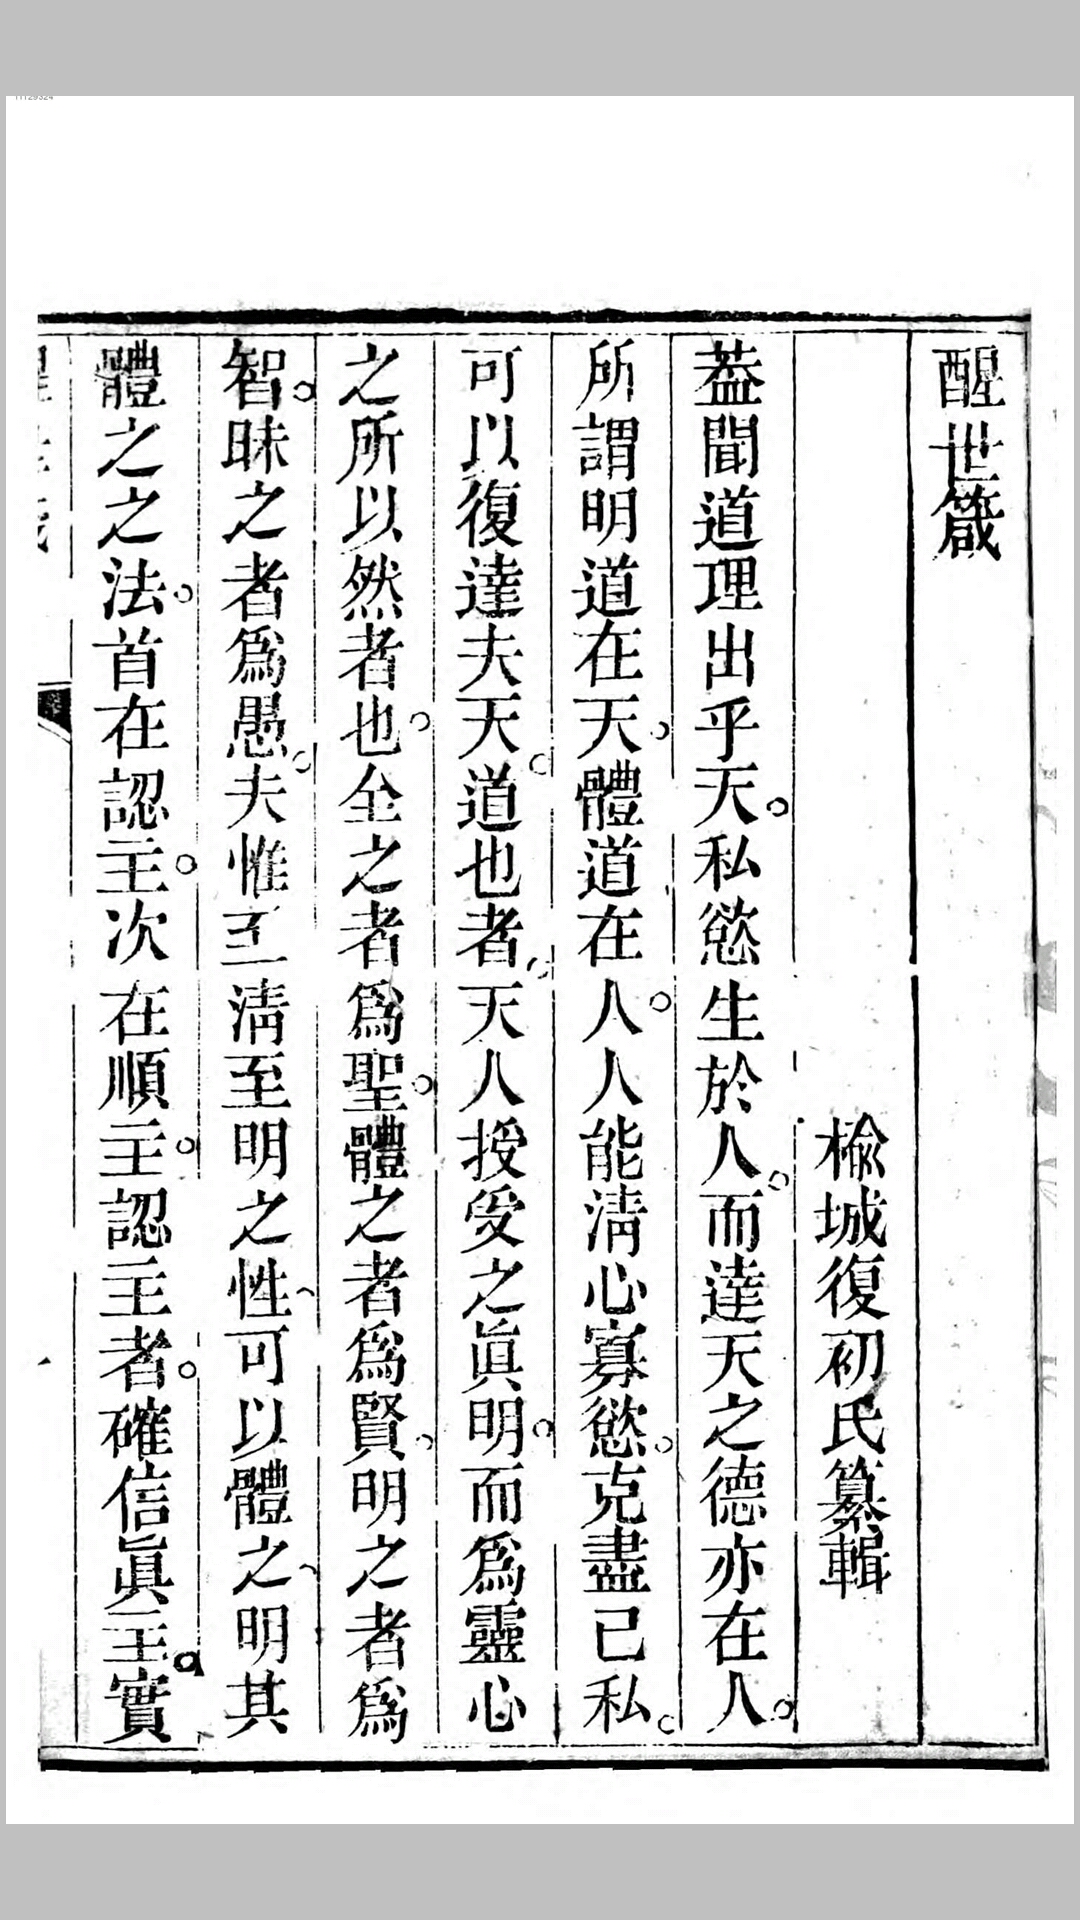 醒世箴
榆城復初氏纂輯
葢聞道理出乎天私慾生於人而達天之德亦在人
所謂明道在天體道在人人能淸心寡慾克盡己私
可以復達夫天道也者天人授受之眞明而爲靈心
之所以然者也全之者爲聖體之者爲賢明之者爲
智昧之者爲愚夫惟至淸至明之性可以體之明其
體之之法首在認主次在順主認主者確信眞主實